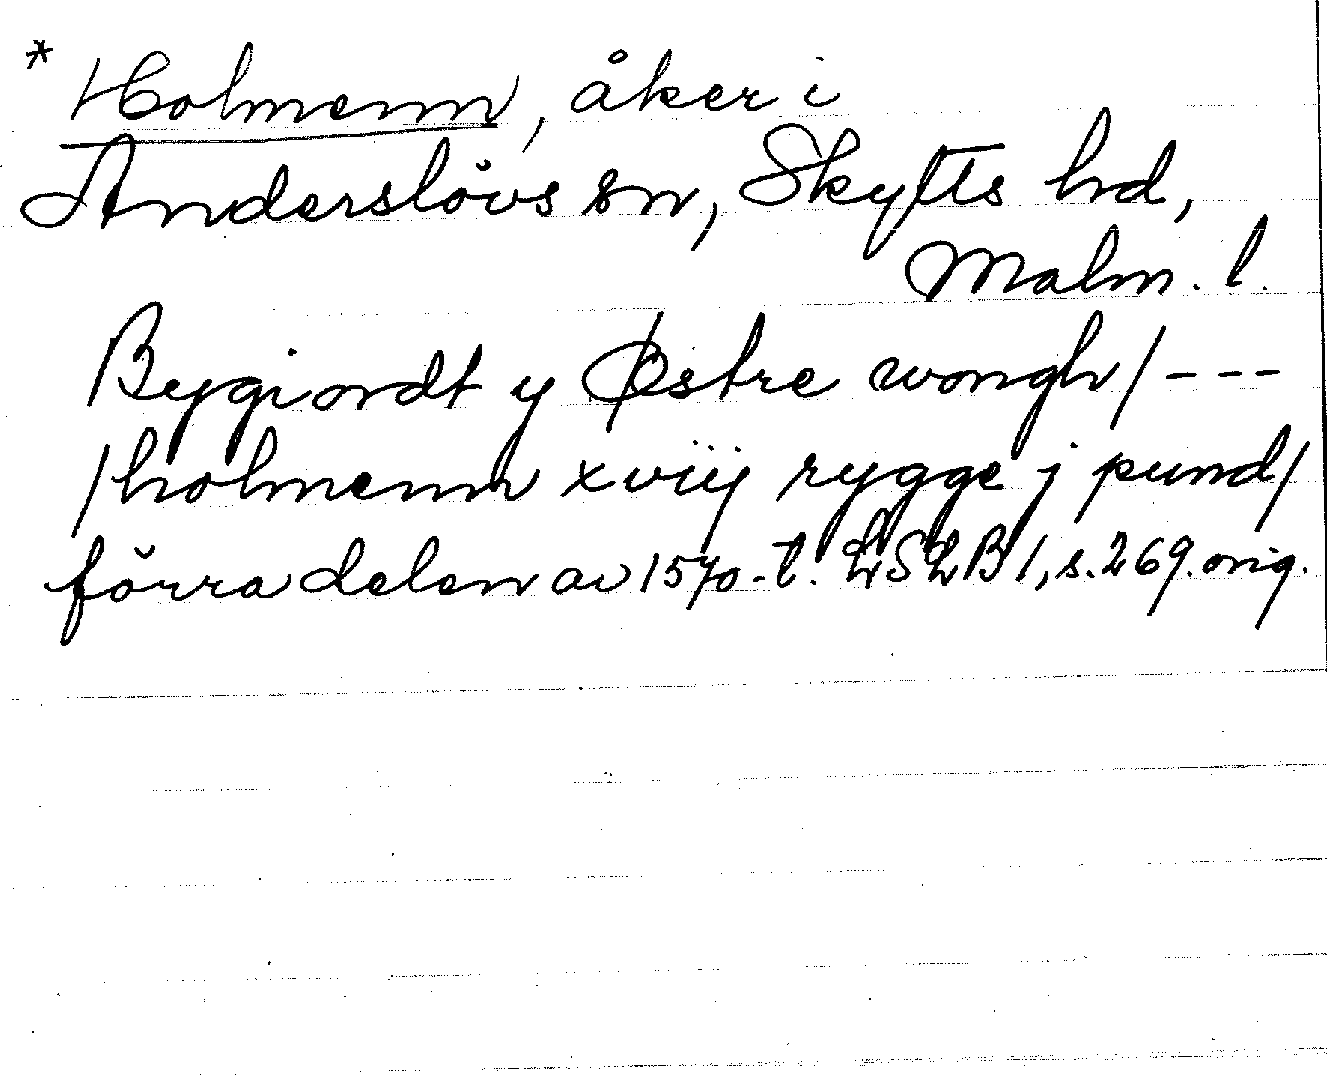 * Holmenn, åker i
Anderslövs sn, Skytts hd,
Malm. l.
Bygiordt y Østre wongh / ---
/ holmenn xviij rygge j pund /
förra delen av 1570-t. LSLB 1, s. 269. orig.